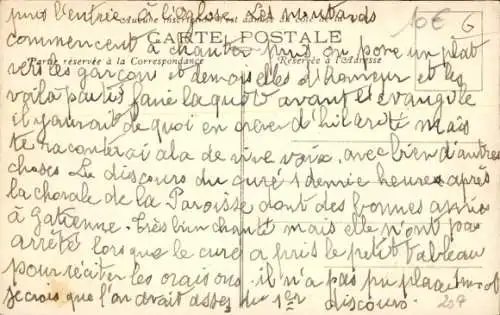 puis l'entrée à l'église les moutards
Aucune inscription
commencent à chanter puis on pose un plat
CARTE POSTALE
Partie réservée à la Correspondance
Réservée à l'Adresse
vers les garçon et demoiselles d'honneur et les
voila partis faire la quete avant l'evangile
il y aurait de quoi en crever d'hilarité mais
te raconterai ala de vive voix. avec bien d'autres
choses Le discours du curé 1 demie heure après
la chorale de la Paroisse dont des bonnes amies
à Gatienne. Très bien chanté mais elle n'ont pas
arrêté lorsque le curé a pris le petit tableau
pour réciter les oraisons il n'a pas pu placer mot
je crois que l'on avait assez du 1er discours.
10€
6
207